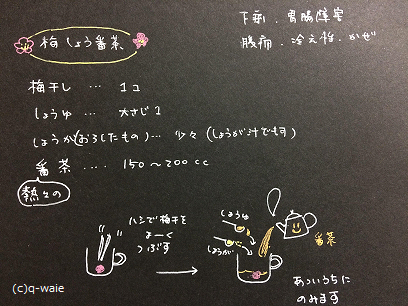 梅しょう番茶
下痢．胃腸障害
腹痛．冷え性．かぜ
梅干し … 1コ
しょうゆ … 大さじ1
しょうが(おろしたもの)… 少々 (しょうが汁でも可)
番茶 …. 150〜200cc
熱々の
ハシで梅干を
よーく
つぶす
しょうゆ
しょうが
番茶
あついうちに
のみます
(c)q-waie